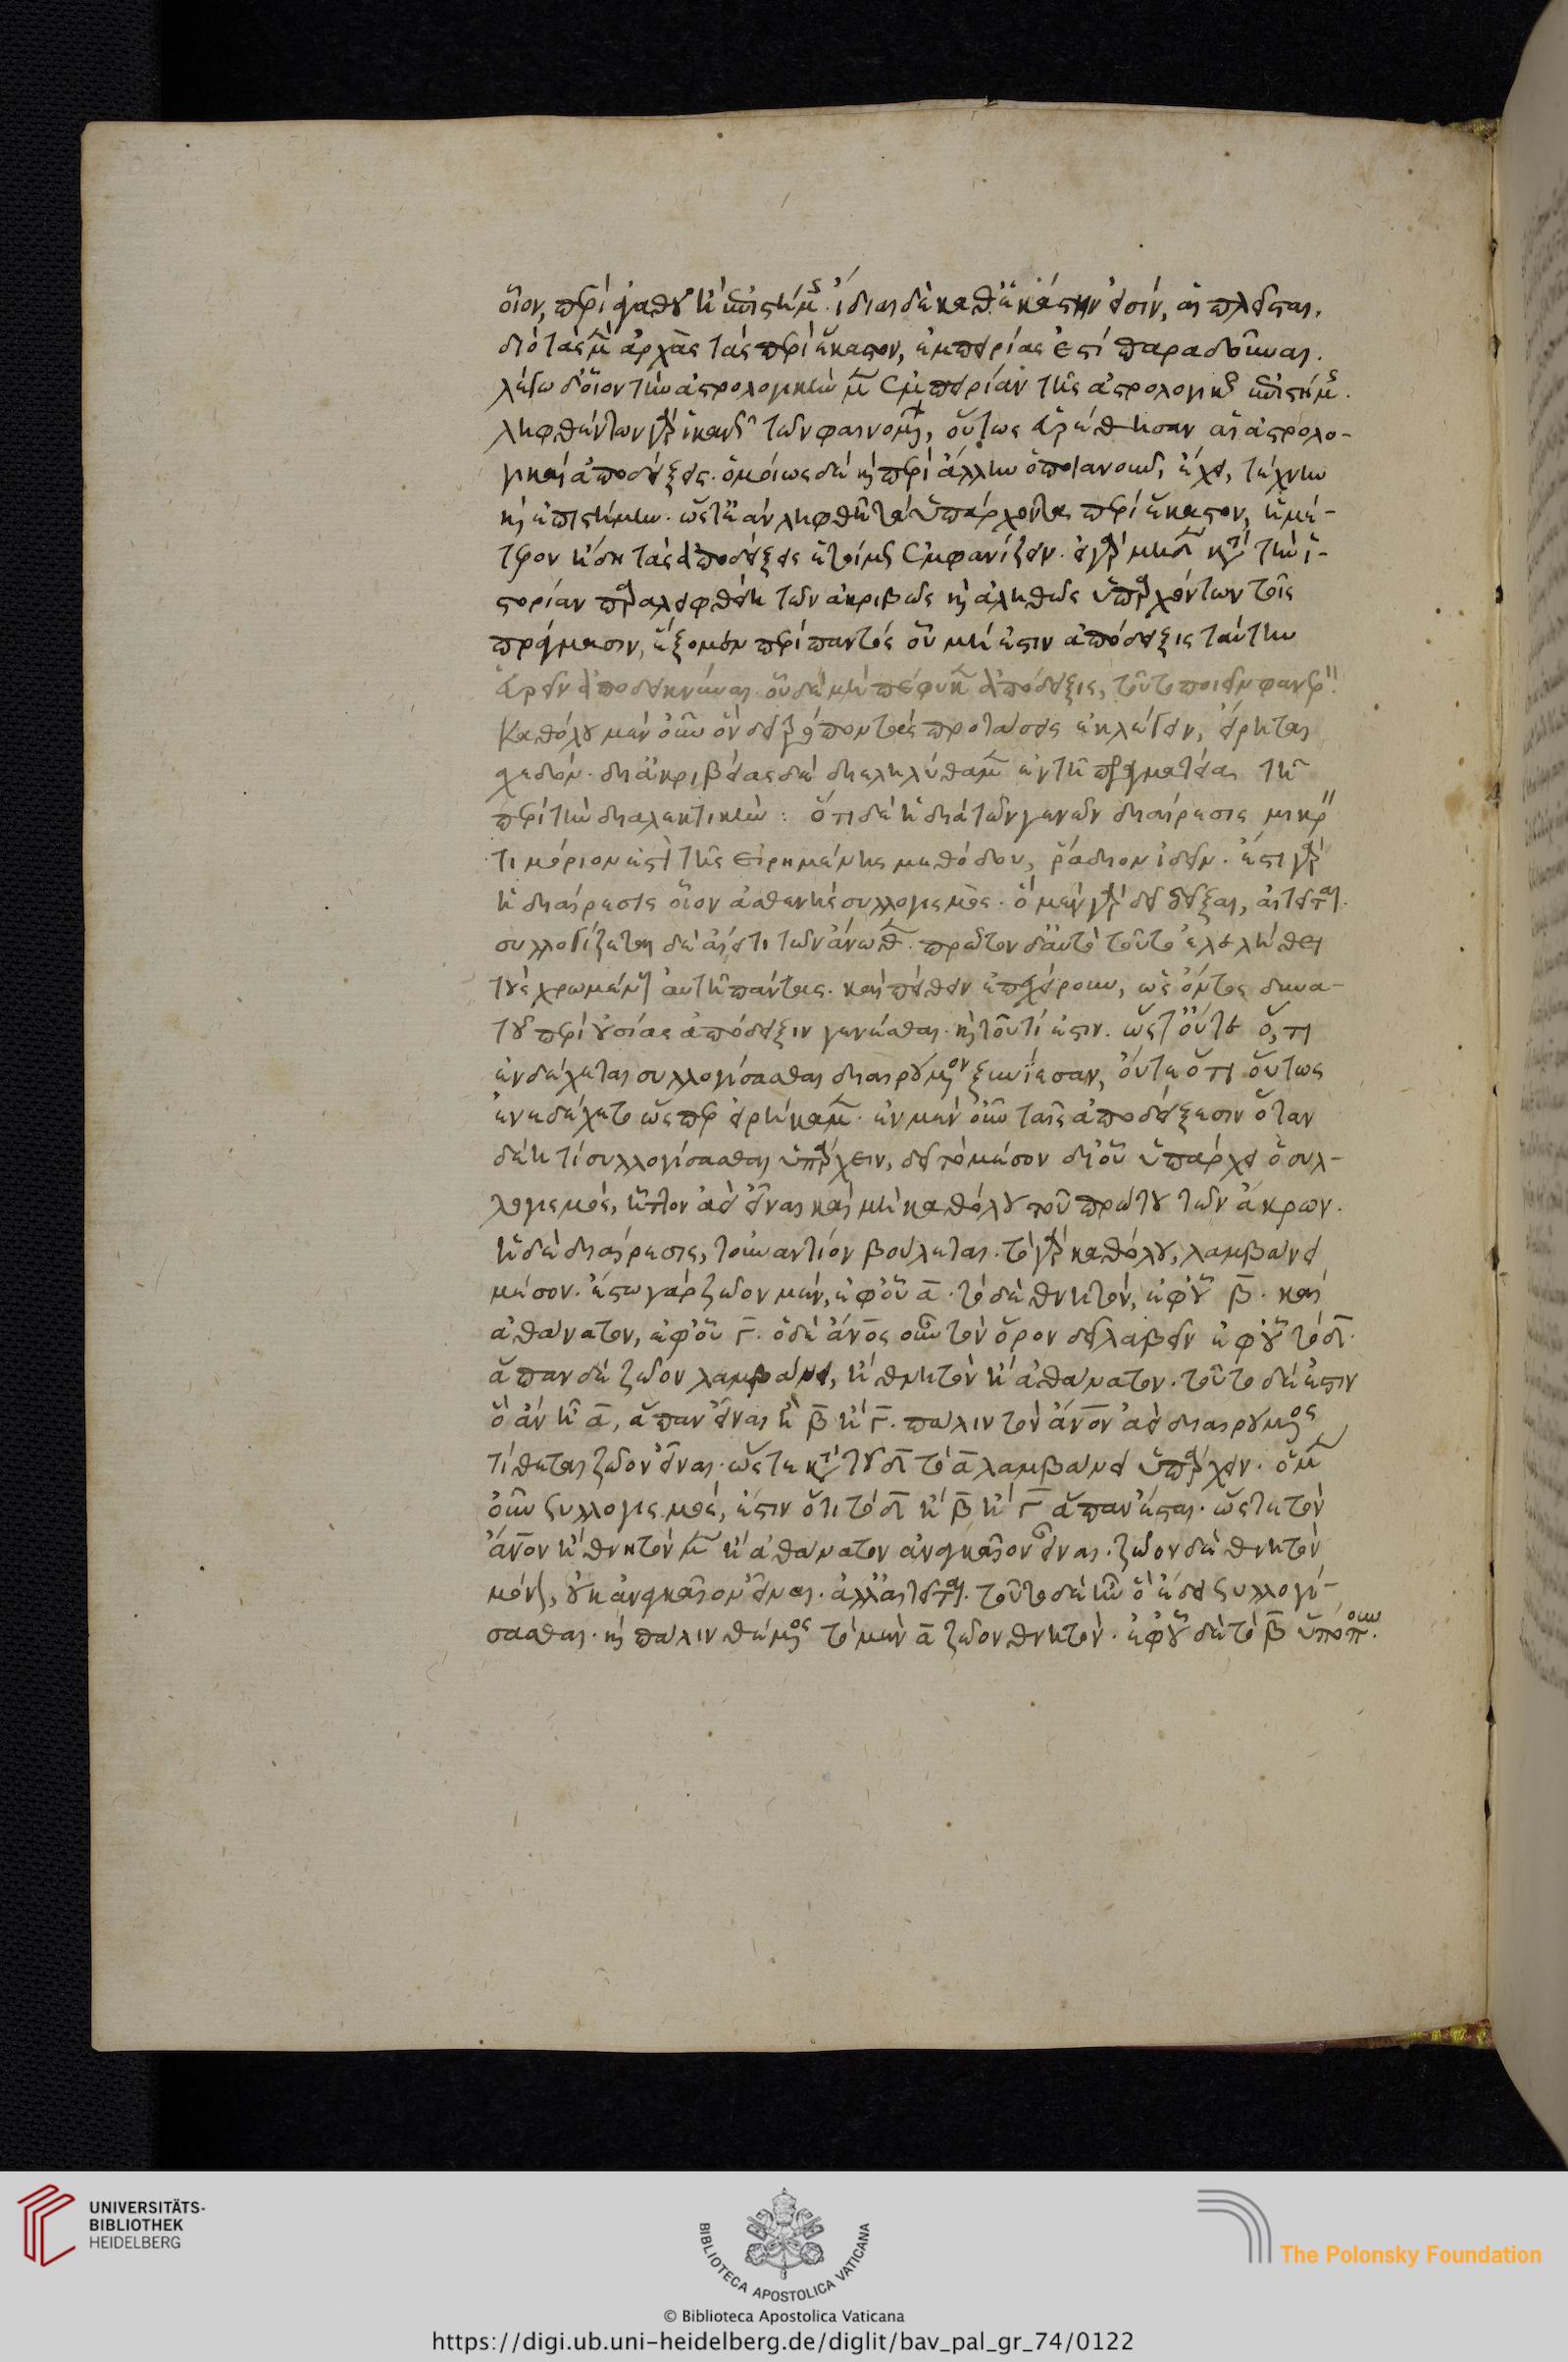 οἷον, περὶ ἀγαθοῦ ἢ ἐπιστήμης. ἴδιαι δὲ καθ' ἑκάστην εἰσὶν, αἱ πλεῖσται.
διὸ τὰς μὲν ἀρχὰς τὰς περὶ ἕκαστον, ἐμπειρίας ἐστὶ παραδοῦναι.
λέγω δ' οἷον τὴν ἀστρολογικὴν μὲν ἐμπειρίαν τῆς ἀστρολογικῆς ἐπιστήμης.
ληφθέντων γὰρ ἱκανῶς τῶν φαινομένων, οὕτως εὑρέθησαν αἱ ἀστρολο-
γικαὶ ἀποδείξεις. ὁμοίως δὲ καὶ περὶ ἄλλην ὁποιανοῦν, ἔχει, τέχνην
καὶ ἐπιστήμην. ὥστε ἂν ληφθῇ τὰ ὑπάρχοντα περὶ ἕκαστον, ἡμέ-
τερον ἤδη τὰς ἀποδείξεις ἑτοίμως ἐμφανίζειν. εἰ γὰρ μηδὲν κατὰ τὴν ἱ-
στορίαν παραλειφθείη τῶν ἀκριβῶς καὶ ἀληθῶς ὑπαρχόντων τοῖς
πράγμασιν, ἕξομεν περὶ παντὸς οὗ μή ἐστιν ἀπόδειξις ταύτην
εὑρεῖν ἀποδεικνύναι. οὗ δὲ μὴ πέφυκεν ἀπόδειξις, τοῦτο ποιεῖν φανερόν.
Καθόλου μὲν οὖν ὃν δεῖ τρόπον τὰς προτάσεις ἐκλέγειν, εἴρηται
σχεδόν. δι' ἀκριβείας δὲ διεληλύθαμεν ἐν τῇ πραγματείᾳ τῇ
περὶ τὴν διαλεκτικὴν: ὅτι δὲ ἡ διὰ τῶν γενῶν διαίρεσις μικρόν
τι μόριόν ἐστι τῆς εἰρημένης μεθόδου, ῥάδιον ἰδεῖν. ἔστι γὰρ
ἡ διαίρεσις οἷον ἀσθενὴς συλλογισμός. ὃ μὲν γὰρ δεῖ δεῖξαι, αἰτεῖται.
συλλογίζεται δὲ ἀεί τι τῶν ἄνωθεν. πρῶτον δ' αὐτὸ τοῦτο ἐλελήθει
τοὺς χρωμένους αὐτῇ πάντας. καὶ πείθειν ἐπεχείρουν, ὡς ὄντος δυνα-
τοῦ περὶ οὐσίας ἀπόδειξιν γενέσθαι. καὶ τοῦ τί ἐστιν. ὥστ' οὔτε ὅ,τι
ἐνδέχεται συλλογίσασθαι διαιρούμενον ξυνίεσαν, οὔτε ὅτι οὕτως
ἐνεδέχετο ὥσπερ εἰρήκαμεν. ἐν μὲν οὖν ταῖς ἀποδείξεσιν ὅταν
δέῃ τὶ συλλογίσασθαι ὑπάρχειν, δεῖ τὸ μέσον δι' οὗ ὑπάρχει ὁ συλ-
λογισμός, ἧττον ἀεὶ εἶναι καὶ μὴ καθόλου τοῦ πρώτου τῶν ἄκρων.
ἡ δὲ διαίρεσις, τοὐναντίον βούλεται. τὸ γὰρ καθόλου, λαμβάνει
μέσον. ἔστω γὰρ ζῶον μὲν, ἐφ' οὗ α. τὸ δὲ θνητόν, ἐφ' οὗ β. καὶ
ἀθάνατον, ἐφ' οὗ γ. ὁ δὲ ἄνος οὗ τὸν ὅρον δεῖ λαβεῖν ἐφ' οὗ τὸ δ.
ἅπαν δὲ ζῶον λαμβάνει, ἢ θνητὸν ἢ ἀθάνατον. τοῦτο δέ ἐστιν
ὃ ἂν ᾖ α, ἅπαν εἶναι ἢ β ἢ γ. πάλιν τὸν ἄνον ἀεὶ διαιρούμενος
τίθεται ζῶον εἶναι. ὥστε κατὰ τοῦ δ τὸ α λαμβάνει ὑπάρχειν. ὁ μὲν
οὖν ξυλλογισμός, ἐστιν ὅτι τὸ δ ἢ β ἢ γ ἅπαν ἔσται. ὥστε τὸν
ἄνον ἢ θνητὸν μὲν ἢ ἀθάνατον ἀναγκαῖον εἶναι. ζῶον δὲ θνητόν
μόνον, οὐκ ἀναγκαῖον εἶναι. ἀλλ' αἰτεῖται. τοῦτο δὲ ἦν ὃ ἔδει ξυλλογί-
σασθαι. καὶ πάλιν θέμενος τὸ μὲν α ζῶον θνητόν. ἐφ' οὗ δὲ τὸ β ὑπόπουν.
UNIVERSITÄTS-
BIBLIOTHEK
HEIDELBERG
BIBLIOTECA APOSTOLICA VATICANA
The Polonsky Foundation
© Biblioteca Apostolica Vaticana
https://digi.ub.uni-heidelberg.de/diglit/bav_pal_gr_74/0122